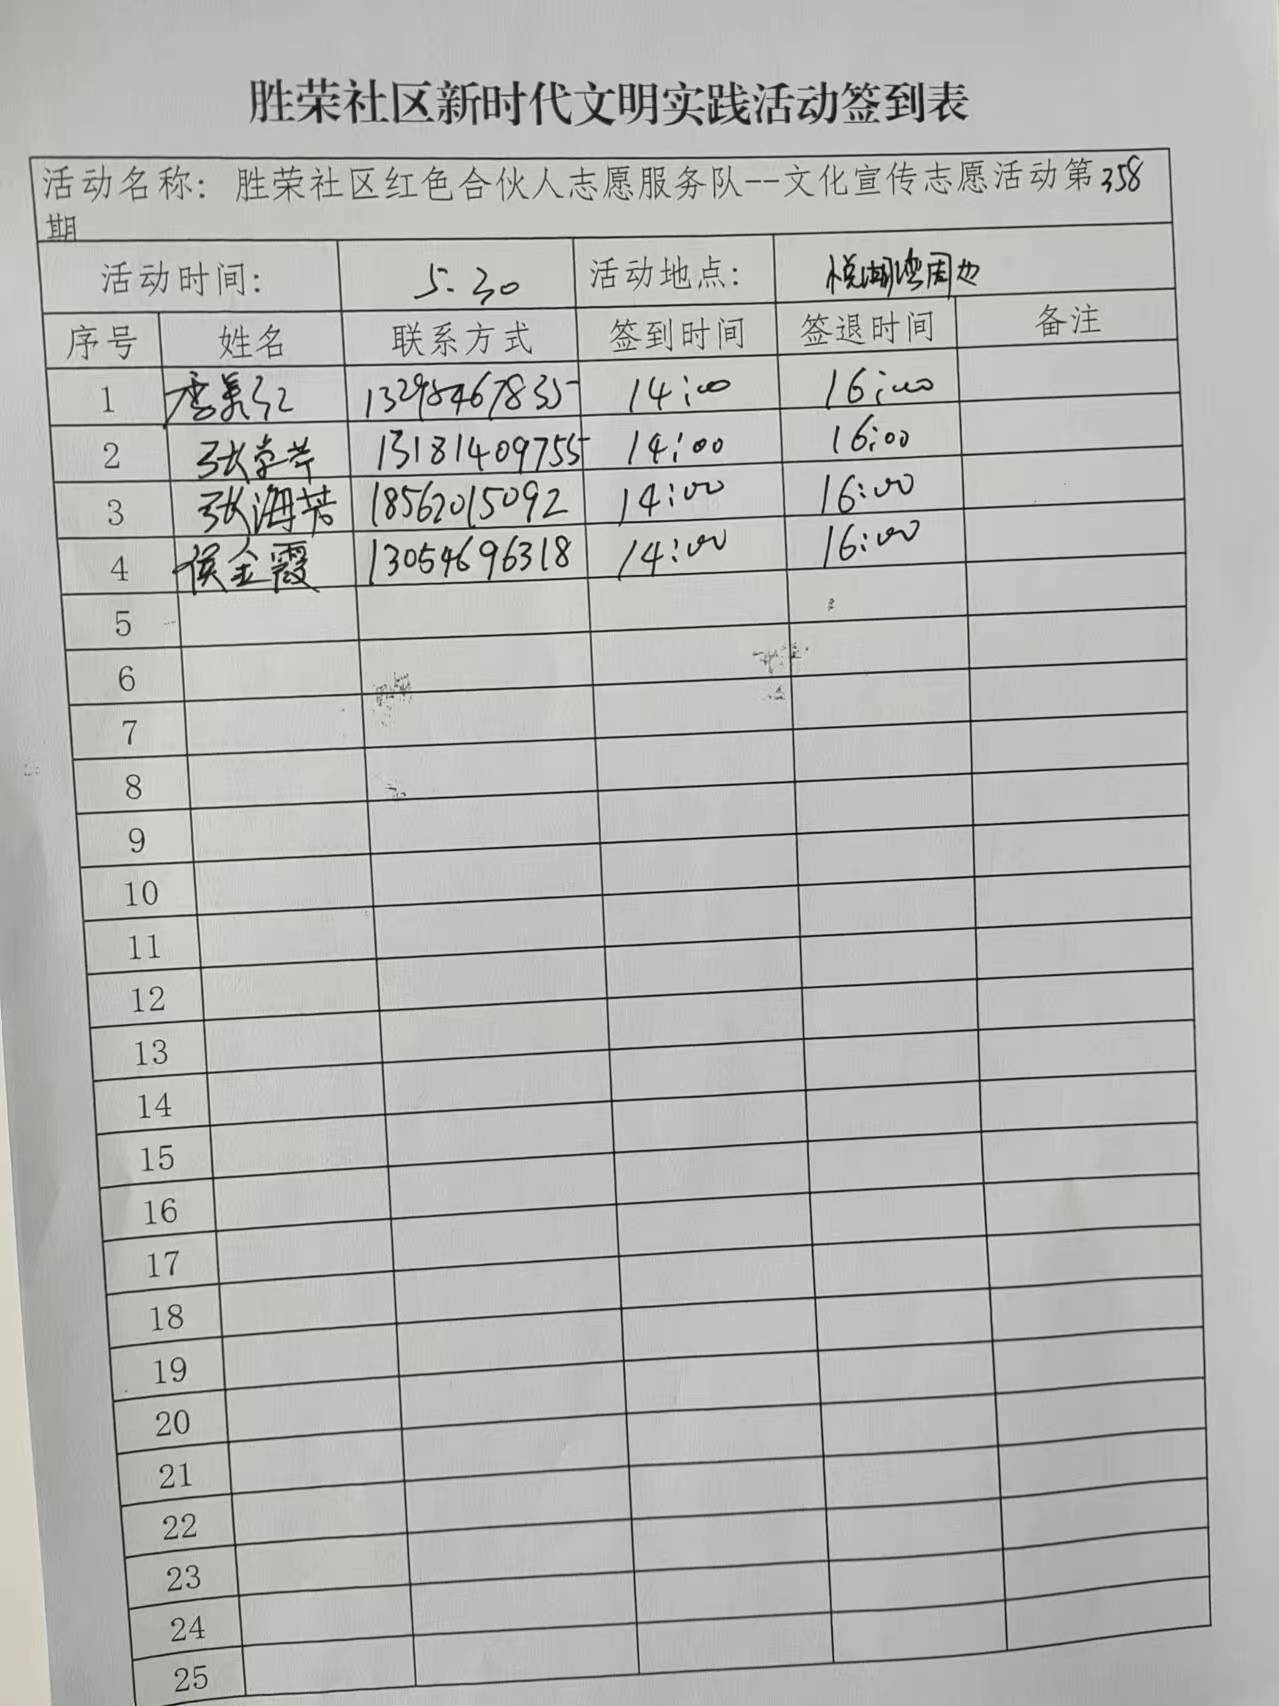 胜荣社区新时代文明实践活动签到表
活动名称：胜荣社区红色合伙人志愿服务队--文化宣传志愿活动第358
期
活动时间： 5.30 活动地点： 悦湖湾周边
序号 姓名 联系方式 签到时间 签退时间 备注
1 李美红 13295467835 14:00 16:00
2 张 13181409755 14:00 16:00
3 张海芳 18562015092 14:00 16:00
4 侯金霞 13054696318 14:00 16:00
5
6
7
8
9
10
11
12
13
14
15
16
17
18
19
20
21
22
23
24
25